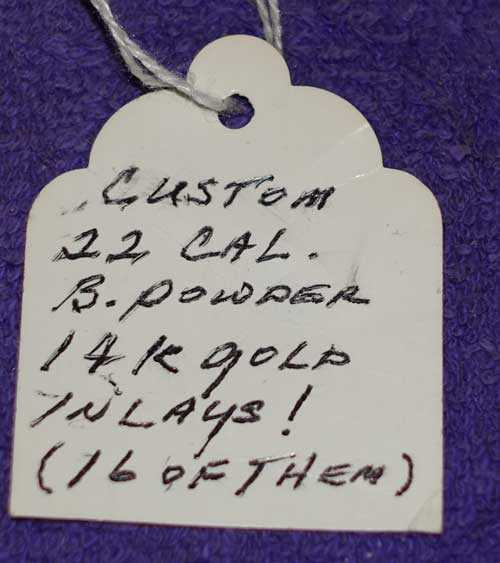 CUSTOM
22 CAL.
B. POWDER
14K GOLD
INLAYS!
(16 OF THEM)